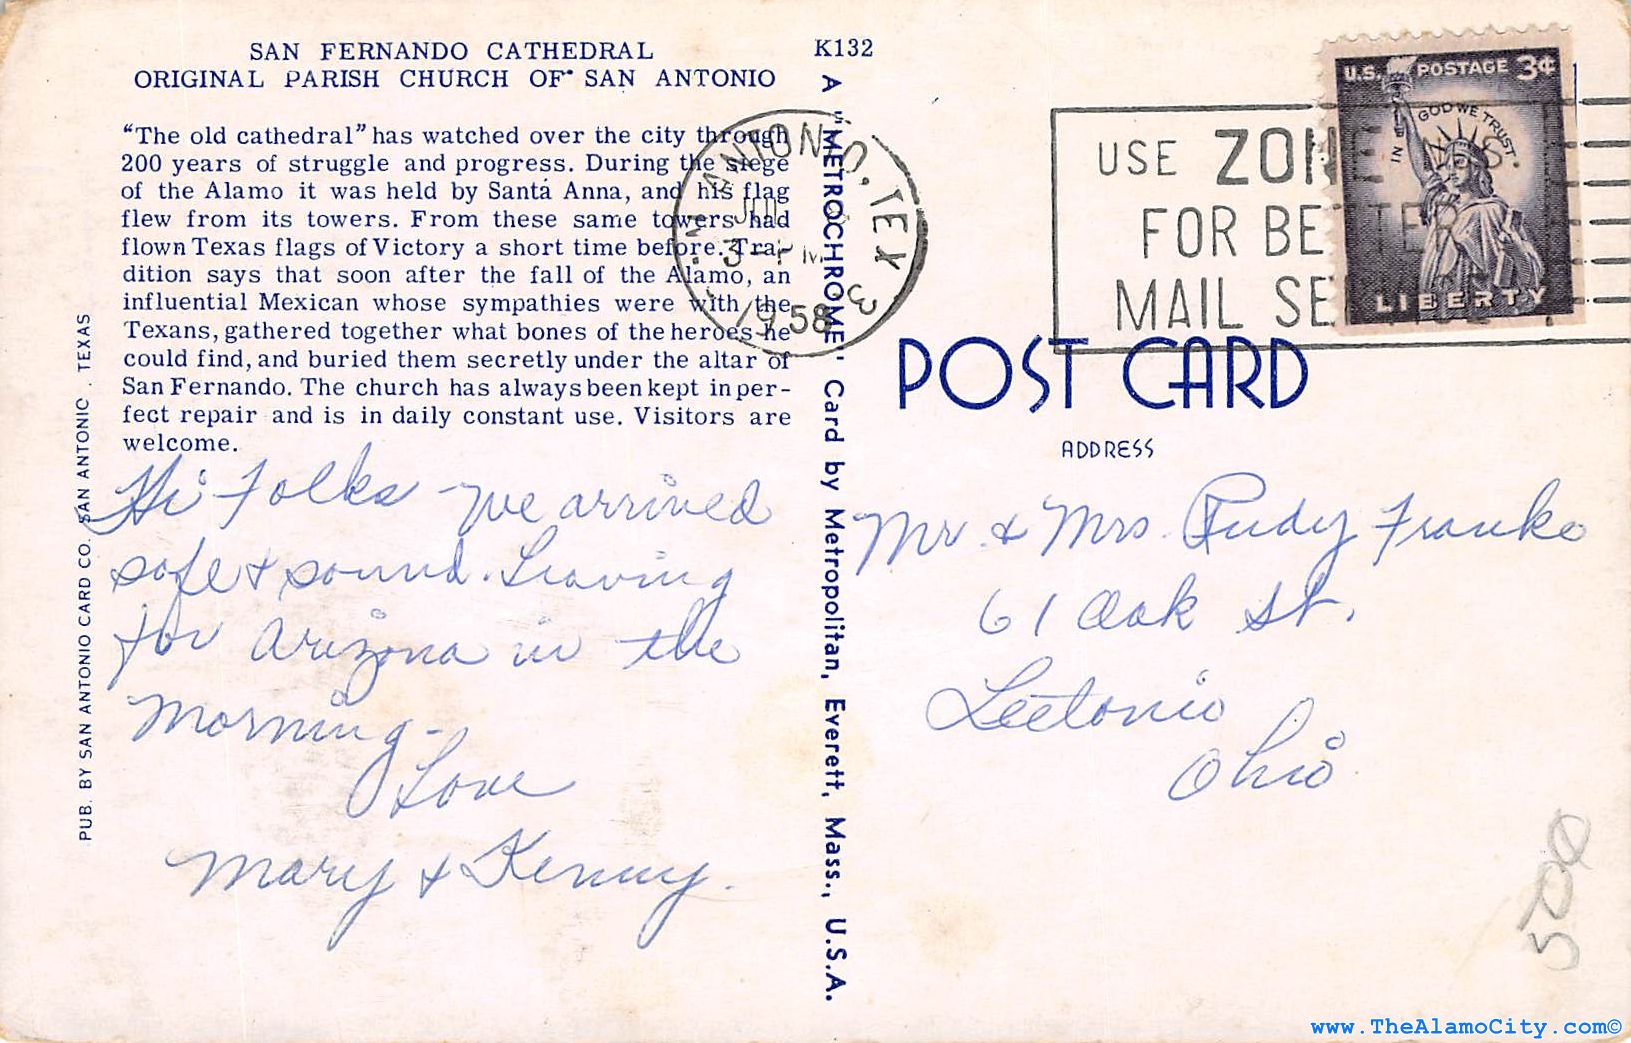 SAN FERNANDO CATHEDRAL
ORIGINAL PARISH CHURCH OF SAN ANTONIO
"The old cathedral" has watched over the city through
200 years of struggle and progress. During the siege
of the Alamo it was held by Santá Anna, and his flag
flew from its towers. From these same towers had
flown Texas flags of Victory a short time before. Tra-
dition says that soon after the fall of the Alamo, an
influential Mexican whose sympathies were with the
Texans, gathered together what bones of the heroes he
could find, and buried them secretly under the altar of
San Fernando. The church has always been kept in per-
fect repair and is in daily constant use. Visitors are
welcome.
Hi Folks - We arrived
safe & sound. Leaving
for Arizona in the
morning -
Love
Mary & Kenny.
PUB. BY SAN ANTONIO CARD CO. SAN ANTONIO, TEXAS
K132
A "METROCHROME" Card by Metropolitan, Everett, Mass., U.S.A.
ANTONIO, TEX
3 - PM
1958
3
USE ZONE NOS.
FOR BETTER
MAIL SERVICE
U.S. POSTAGE 3¢
IN GOD WE TRUST
LIBERTY
POST CARD
ADDRESS
Mr. & Mrs. Rudy Franko
61 Oak St.
Leetonia
Ohio
500
www.TheAlamoCity.com©